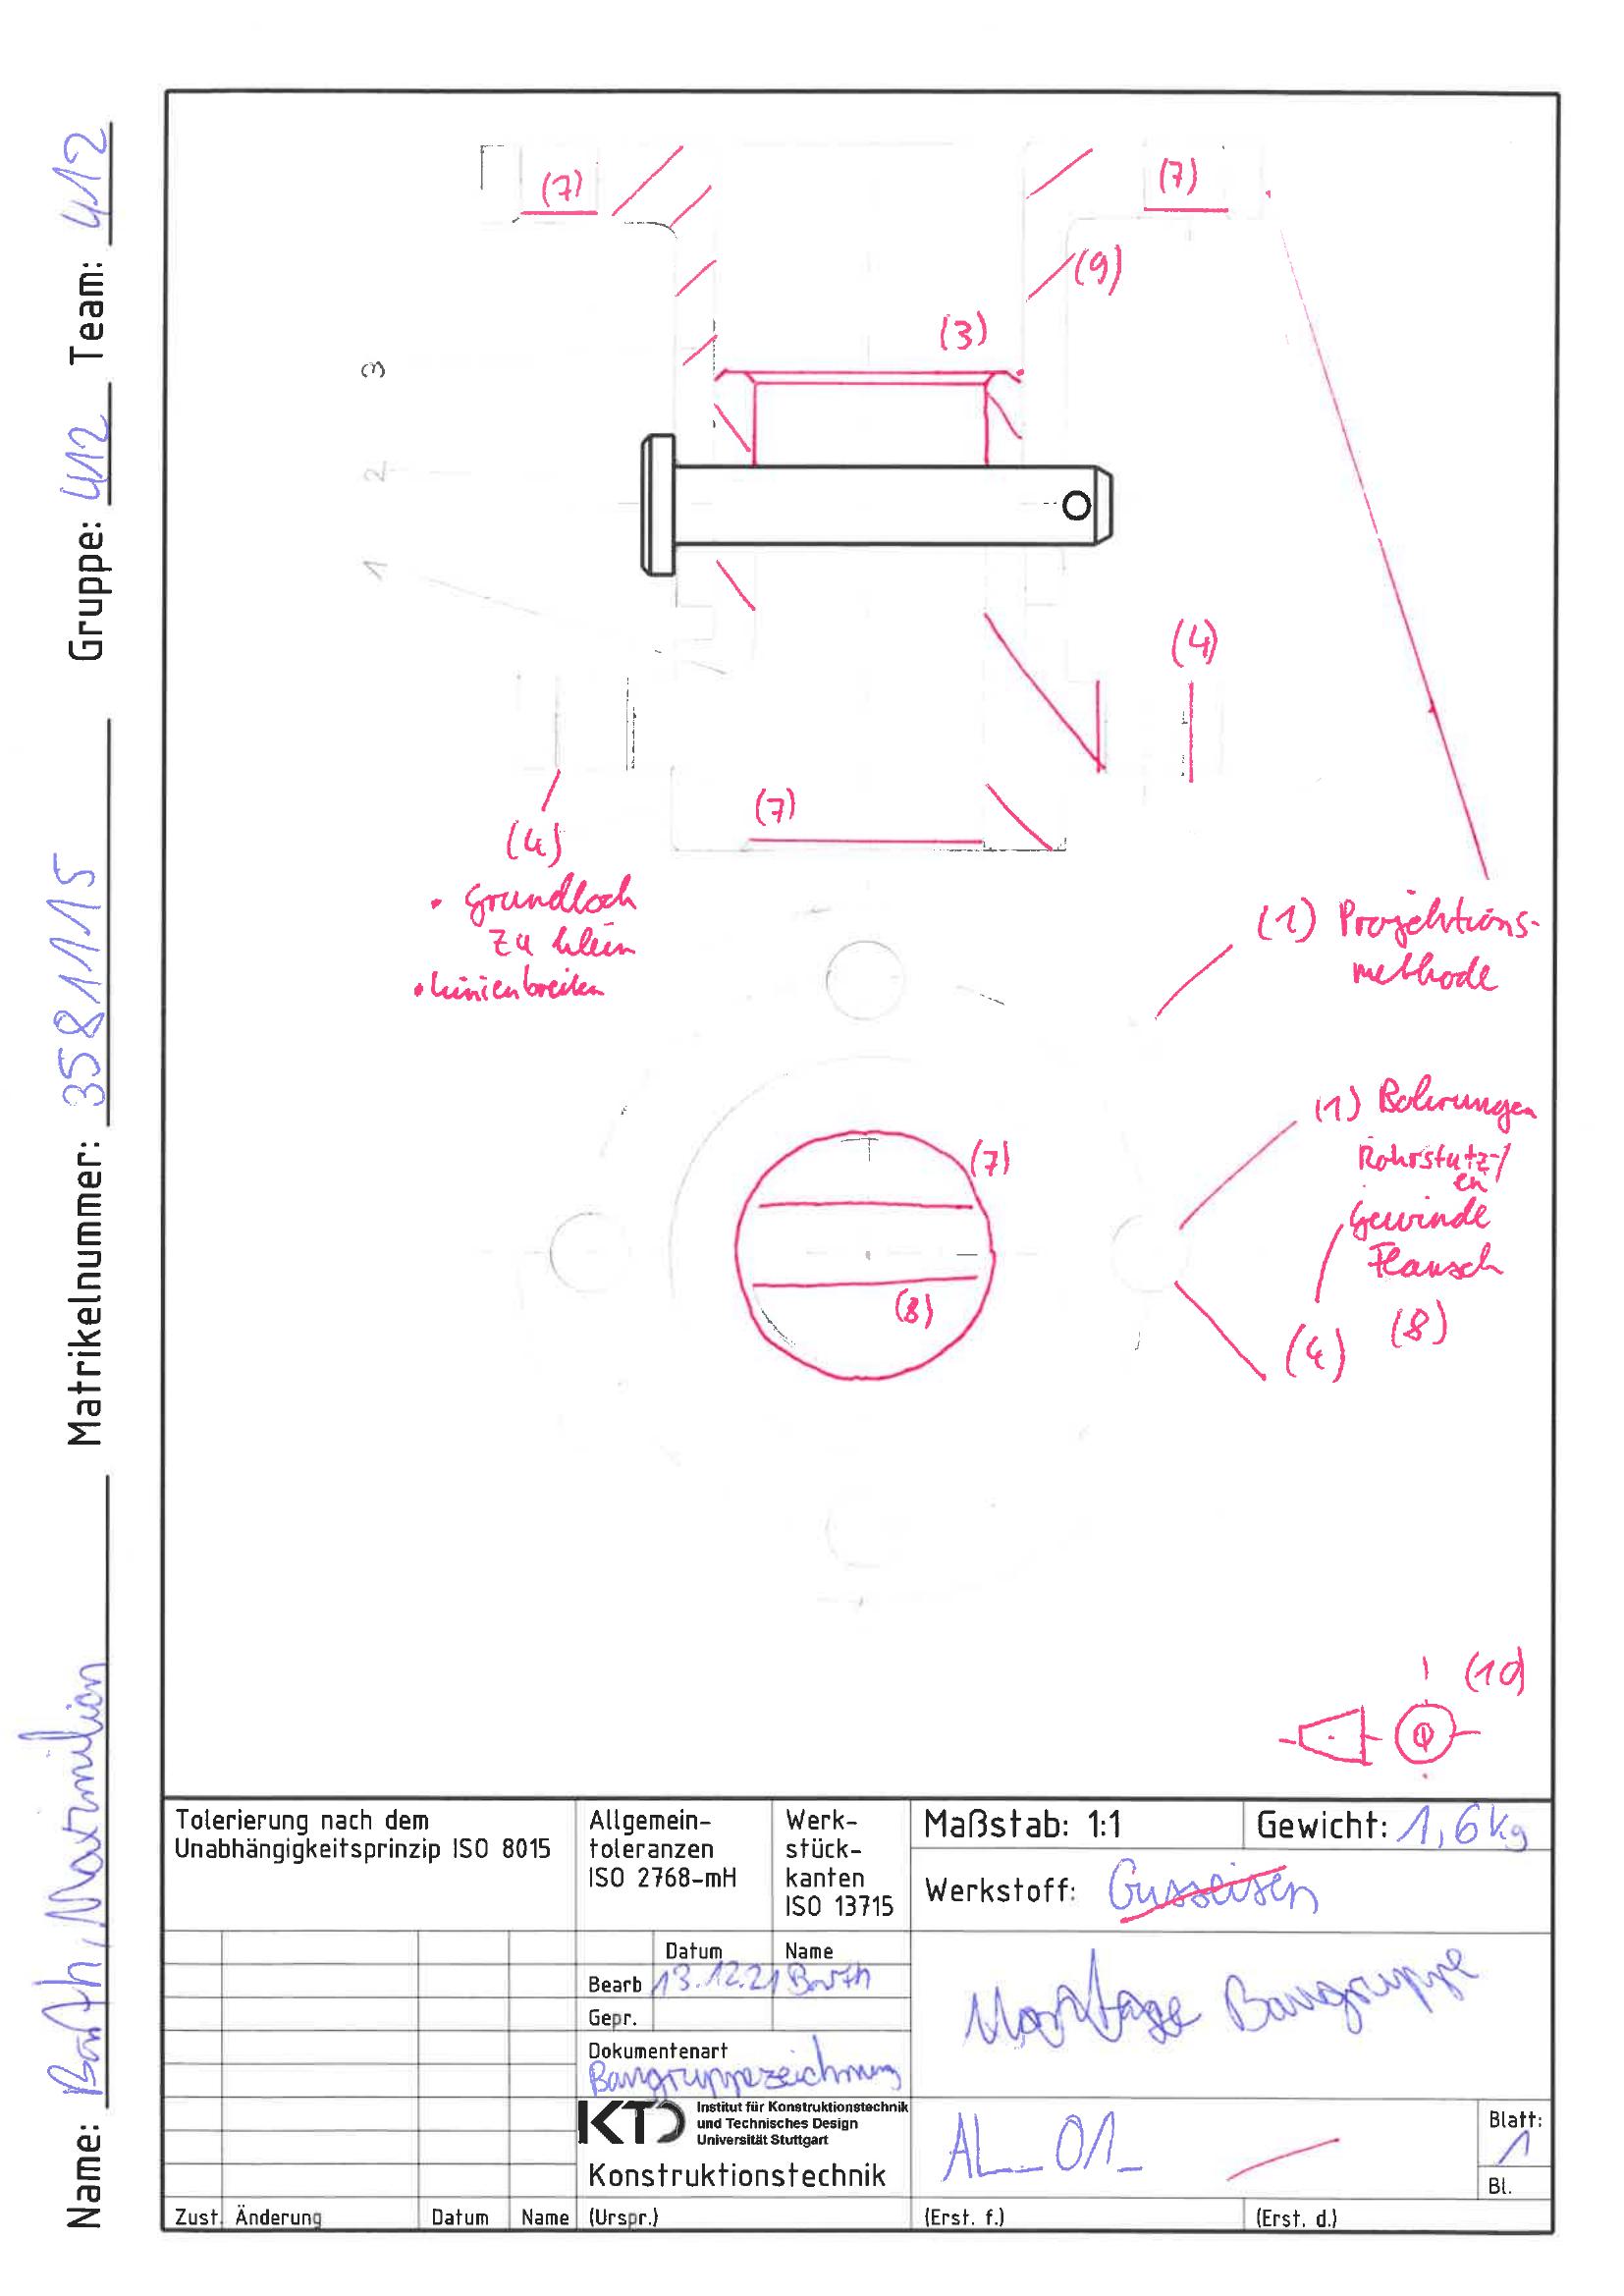 Name: Barth, Maximilian Matrikelnummer: 3581115 Gruppe: 412 Team: 412
(7)
(7)
(9)
(3)
3
2
1
(4)
(7)
(4)
• Grundloch
zu klein
• Linienbreiten
(1) Projektions-
methode
(1) Bohrungen
Rohrstutz-/
en
Gewinde
Flansch
(7)
(8)
(4)
(8)
(10)
Tolerierung nach dem
Unabhängigkeitsprinzip ISO 8015
Allgemein-
toleranzen
ISO 2768-mH
Werk-
stück-
kanten
ISO 13715
Maßstab: 1:1
Gewicht: 1,6kg
Werkstoff: Gusseisen
Datum Name
Bearb 13.12.21 Barth
Gepr.
Dokumentenart
Baugruppezeichnung
Montage Baugruppe
KTD
Institut für Konstruktionstechnik
und Technisches Design
Universität Stuttgart
Konstruktionstechnik
AL_01_
Blatt:
1
Bl.
Zust. Änderung Datum Name (Urspr.) (Erst. f.) (Erst. d.)